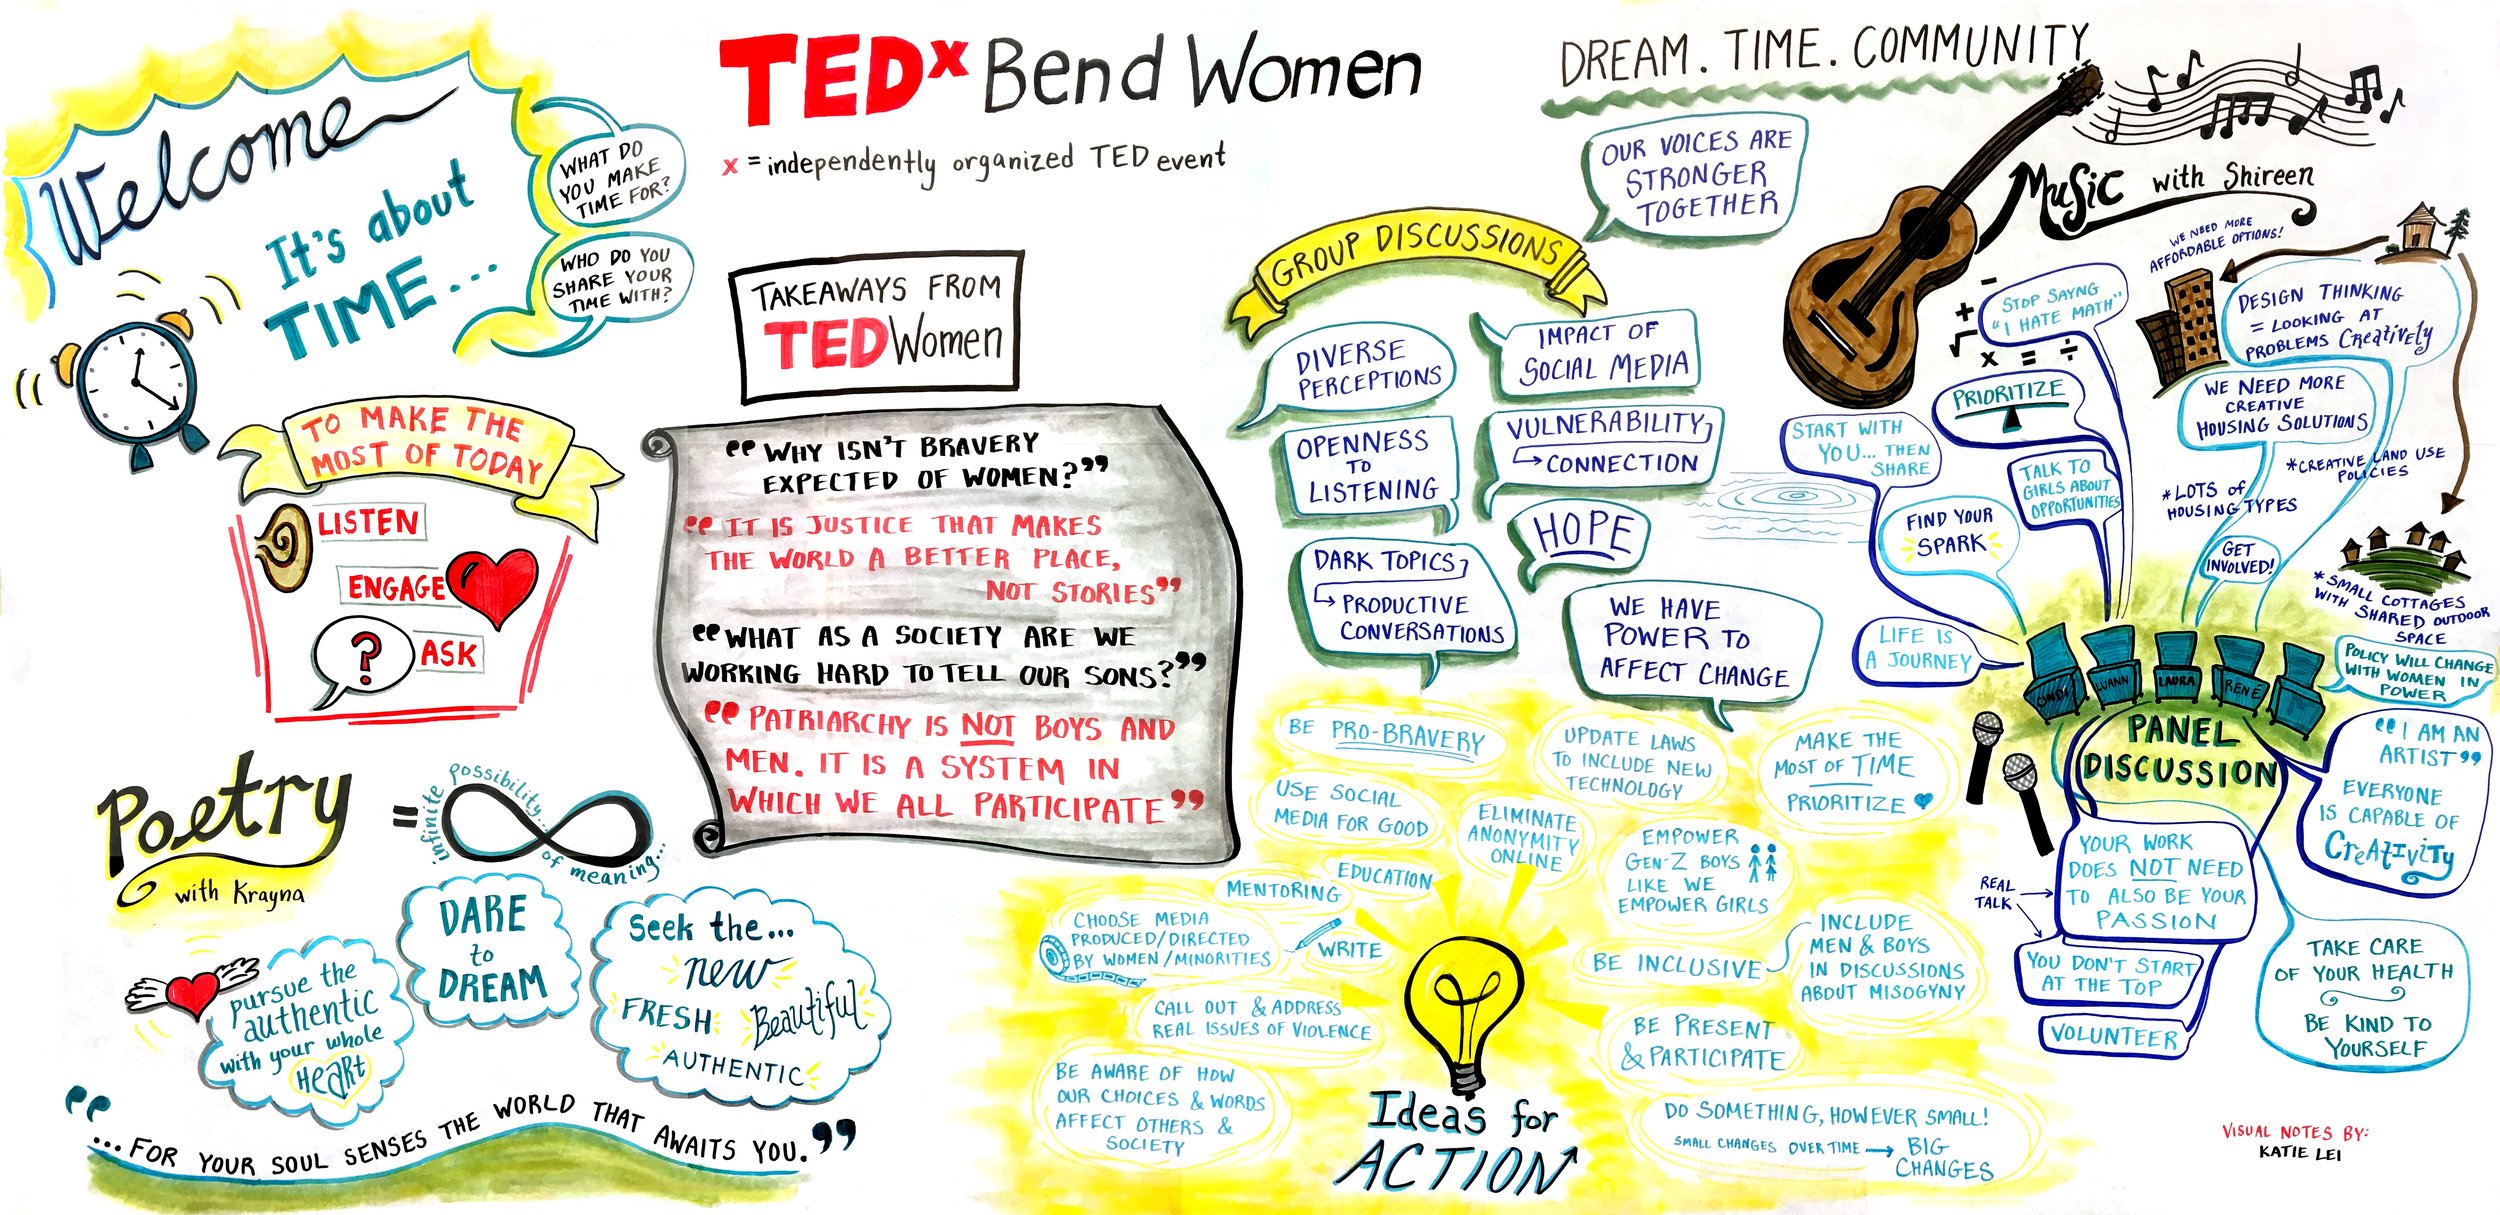 Welcome
It's about
TIME...
WHAT DO
YOU MAKE
TIME FOR?
WHO DO YOU
SHARE YOUR
TIME WITH?
TO MAKE THE
MOST OF TODAY
LISTEN
ENGAGE
?
ASK
Poetry
with Krayna
=
infinite possibility...
of meaning...
pursue the
authentic
with your whole
HEART
DARE
to
DREAM
Seek the...
new
FRESH
Beautiful
AUTHENTIC
"...FOR YOUR SOUL SENSES THE WORLD THAT AWAITS YOU."
TEDx Bend Women
x = independently organized TED event
TAKEAWAYS FROM
TEDWomen
"WHY ISN'T BRAVERY
EXPECTED OF WOMEN?"
"IT IS JUSTICE THAT MAKES
THE WORLD A BETTER PLACE,
NOT STORIES"
"WHAT AS A SOCIETY ARE WE
WORKING HARD TO TELL OUR SONS?"
"PATRIARCHY IS NOT BOYS AND
MEN. IT IS A SYSTEM IN
WHICH WE ALL PARTICIPATE"
DREAM. TIME. COMMUNITY
OUR VOICES ARE
STRONGER
TOGETHER
GROUP DISCUSSIONS
DIVERSE
PERCEPTIONS
IMPACT OF
SOCIAL MEDIA
OPENNESS
TO
LISTENING
VULNERABILITY
→ CONNECTION
HOPE
DARK TOPICS
→ PRODUCTIVE
CONVERSATIONS
WE HAVE
POWER TO
AFFECT CHANGE
BE PRO-BRAVERY
UPDATE LAWS
TO INCLUDE NEW
TECHNOLOGY
MAKE THE
MOST OF TIME
PRIORITIZE ♥
USE SOCIAL
MEDIA FOR GOOD
ELIMINATE
ANONYMITY
ONLINE
EMPOWER
GEN-Z BOYS
LIKE WE
EMPOWER GIRLS
EDUCATION
MENTORING
CHOOSE MEDIA
PRODUCED/DIRECTED
BY WOMEN/MINORITIES
WRITE
CALL OUT & ADDRESS
REAL ISSUES OF VIOLENCE
BE AWARE OF HOW
OUR CHOICES & WORDS
AFFECT OTHERS &
SOCIETY
BE INCLUSIVE
INCLUDE
MEN & BOYS
IN DISCUSSIONS
ABOUT MISOGYNY
BE PRESENT
& PARTICIPATE
DO SOMETHING, HOWEVER SMALL!
SMALL CHANGES OVER TIME → BIG
CHANGES
Ideas for
ACTION
Music with Shireen
- + √ x = ÷
STOP SAYNG
"I HATE MATH"
PRIORITIZE
START WITH
YOU... THEN
SHARE
TALK TO
GIRLS ABOUT
OPPORTUNITIES
FIND YOUR
SPARK
LIFE IS
A JOURNEY
WE NEED MORE
AFFORDABLE OPTIONS!
DESIGN THINKING
= LOOKING AT
PROBLEMS Creatively
WE NEED MORE
CREATIVE
HOUSING SOLUTIONS
*CREATIVE LAND USE
POLICIES
*LOTS of
HOUSING TYPES
GET
INVOLVED!
*SMALL COTTAGES
WITH SHARED OUTDOOR
SPACE
CINDI
LUANN
LAURA
RENÉ
POLICY WILL CHANGE
WITH WOMEN IN
POWER
PANEL
DISCUSSION
"I AM AN
ARTIST"
EVERYONE
IS CAPABLE OF
CREATIVITY
REAL
TALK
YOUR WORK
DOES NOT NEED
TO ALSO BE YOUR
PASSION
YOU DON'T START
AT THE TOP
VOLUNTEER
TAKE CARE
OF YOUR HEALTH
BE KIND TO
YOURSELF
VISUAL NOTES BY:
KATIE LEI